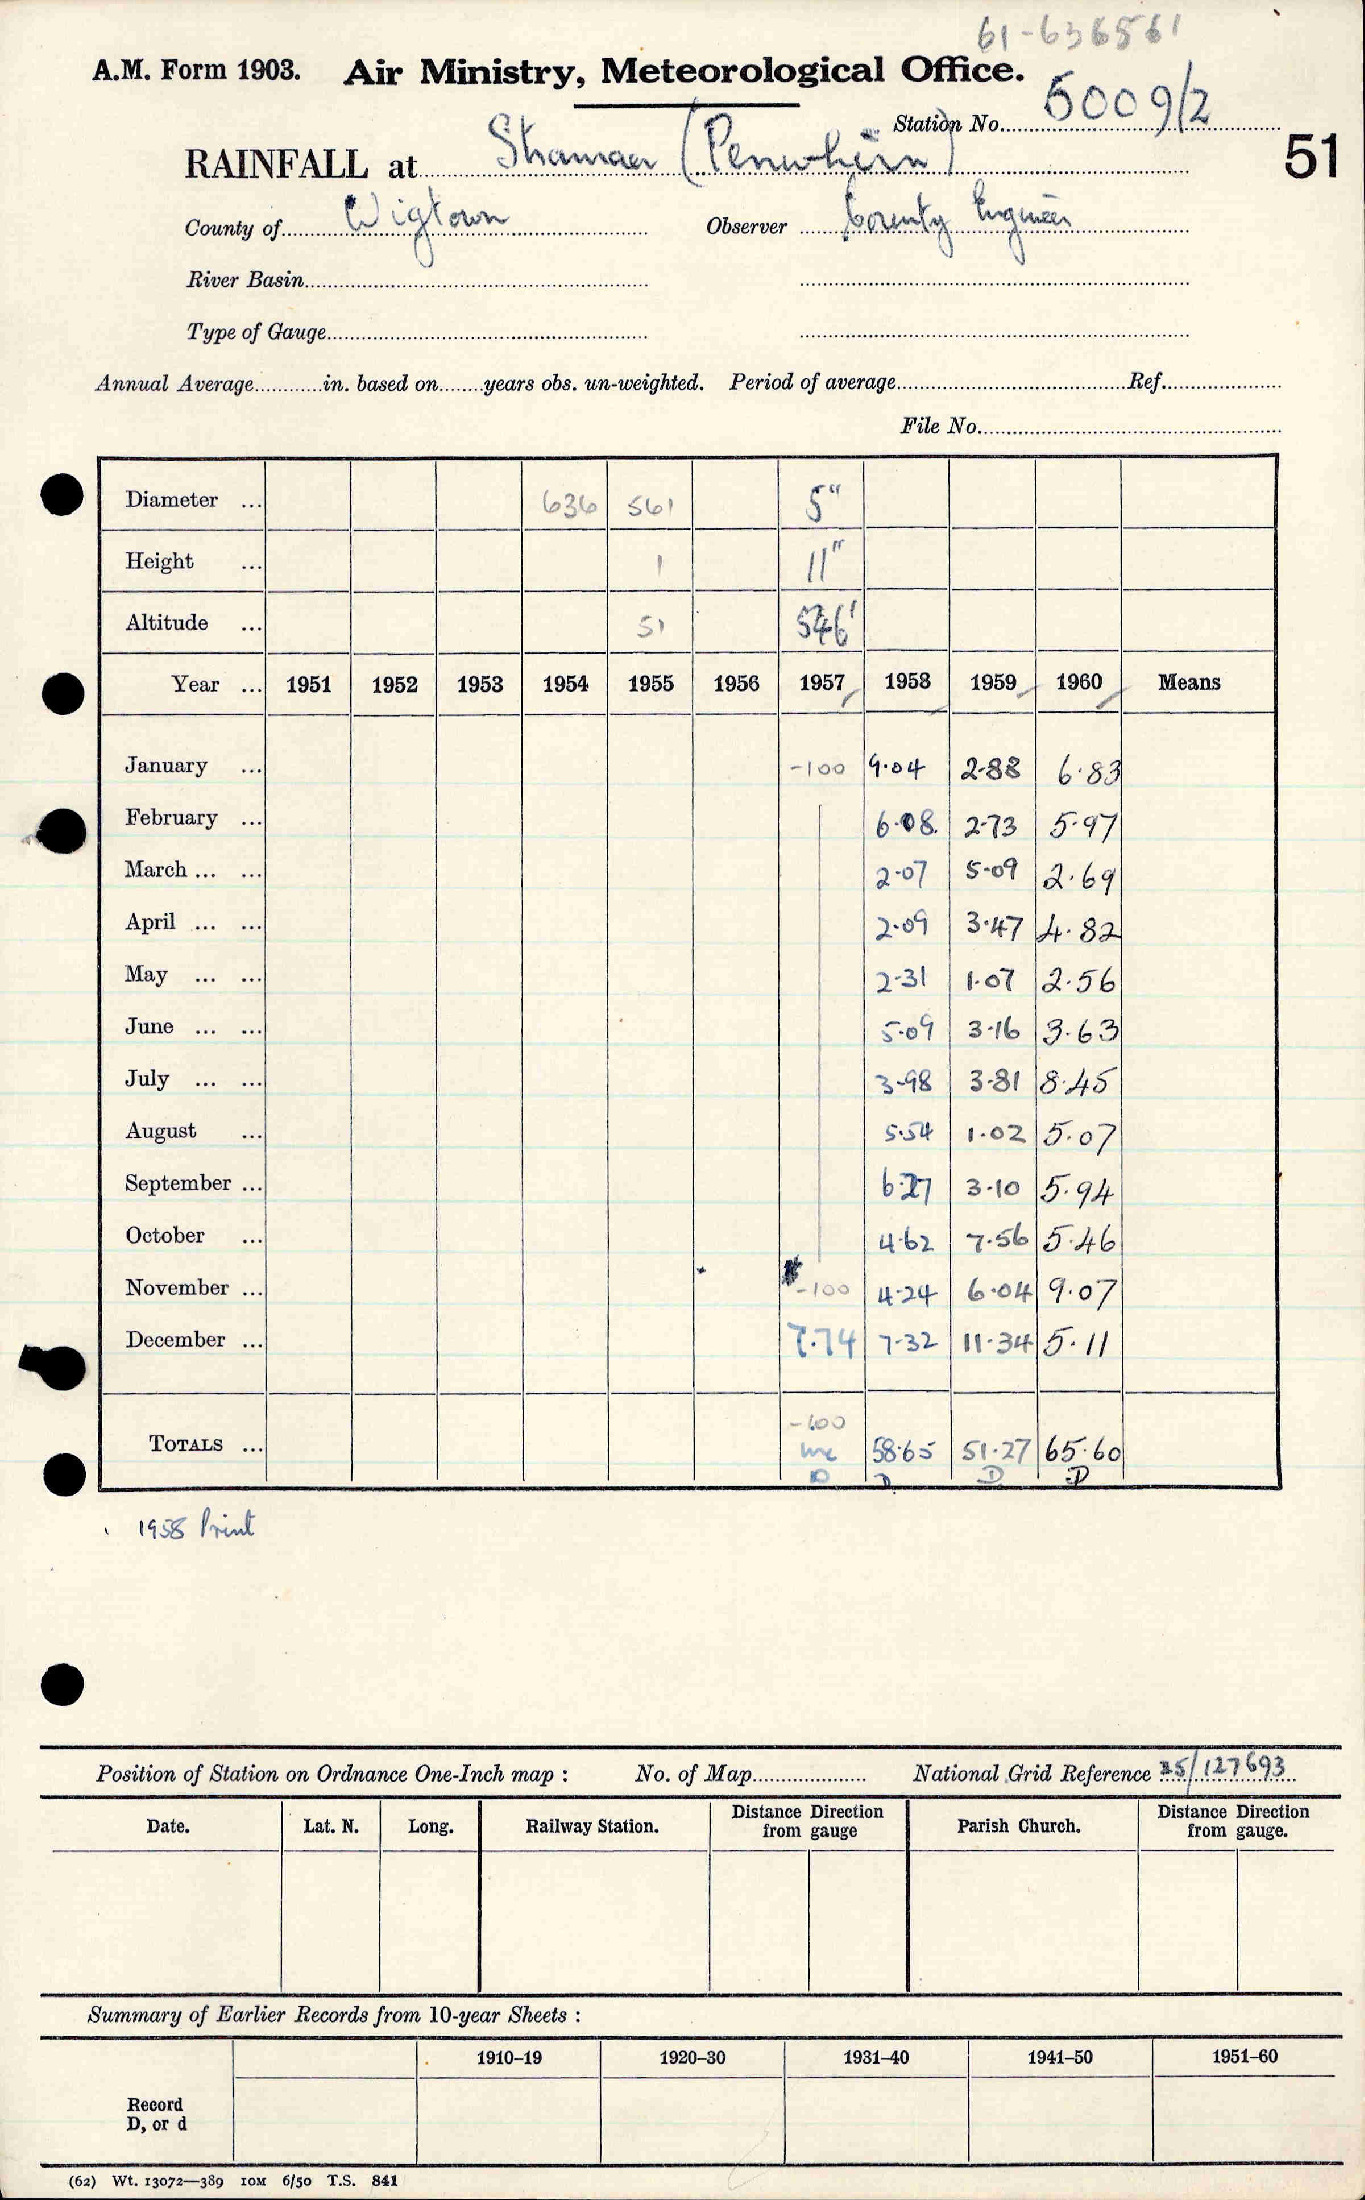 61-636561
A.M. Form 1903. Air Ministry, Meteorological Office.
Station No. 5009/2
51
RAINFALL at Stranraer (Penwhirn)
County of Wigtown Observer County Engineer
River Basin
Type of Gauge
Annual Average in. based on years obs. un-weighted. Period of average Ref.
File No.
Diameter ... 636 561 5"
Height ... 1 11"
Altitude ... 51 546'
Year ... 1951 1952 1953 1954 1955 1956 1957 1958 1959 1960 Means
January ... -100 9.04 2.88 6.83
February ... 6.08 2.73 5.97
March ... ... 2.07 5.09 2.69
April ... ... 2.09 3.47 4.82
May ... ... 2.31 1.07 2.56
June ... ... 5.09 3.16 3.63
July ... ... 3.98 3.81 8.45
August ... 5.54 1.02 5.07
September ... 6.27 3.10 5.94
October ... 4.62 7.56 5.46
November ... -100 4.24 6.04 9.07
December ... 7.74 7.32 11.34 5.11
-100
TOTALS ... inc 58.65 51.27 65.60
D D D D
1958 Print
Position of Station on Ordnance One-Inch map : No. of Map National Grid Reference 25/127693
Date. Lat. N. Long. Railway Station. Distance Direction from gauge Parish Church. Distance Direction from gauge.
Summary of Earlier Records from 10-year Sheets :
1910–19 1920–30 1931–40 1941–50 1951–60
Record
D, or d
(62) Wt. 13072—389 10M 6/50 T.S. 841